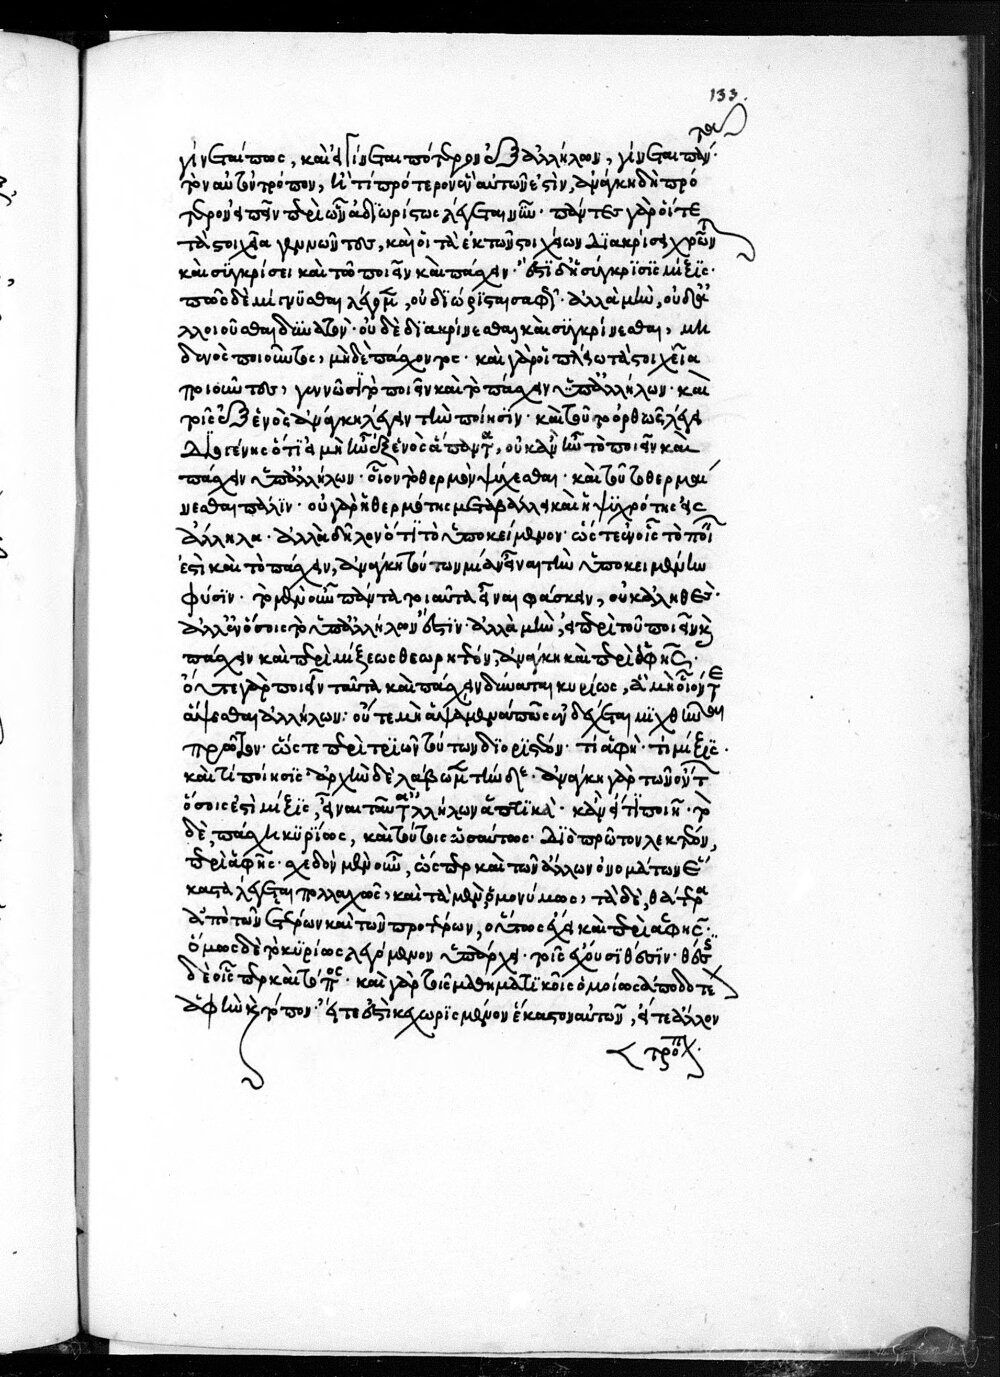 133.
γίνεταί πως, καὶ εἰ γίνεται πότερον ἐξ ἀλλήλων, γίνεται πάν
τα
τὸν αὐτὸν τρόπον, ἤ τι πρότερον ἓν αὐτῶν ἐστὶν, ἀνάγκη δὴ πρό
τερον εἰπεῖν περὶ ὧν ἀδιωρίστως λέγεται νῦν. πάντες γὰρ οἵ τε
τὰ στοιχεῖα γεννῶντες, καὶ οἱ τὰ ἐκ τῶν στοιχείων διακρίσει χρῶνται
καὶ συγκρίσει καὶ τῷ ποιεῖν καὶ πάσχειν. ἔστι δ' ἡ σύγκρισις μίξις.
πῶς δὲ μίγνυσθαι λέγομεν, οὐ διώρισται σαφῶς. ἀλλὰ μὴν, οὐδ' ἀ
λλοιοῦσθαι δυνατόν. οὐδὲ διακρίνεσθαι καὶ συγκρίνεσθαι, μη
δενὸς ποιοῦντος, μηδὲ πάσχοντος. καὶ γὰρ οἱ πλείω τὰ στοιχεῖα
ποιοῦντες, γεννῶσι τὸ ποιεῖν καὶ τὸ πάσχειν ὑπ' ἀλλήλων. καὶ
τοῖς ἐξ ἑνὸς ἀνάγκη λέγειν τὴν ποίησιν. καὶ τοῦτο ὀρθῶς λέγει
Διογένης ὅτι εἰ μὴ ἦν ἐξ ἑνὸς ἅπαντα, οὐκ ἂν ἦν τὸ ποιεῖν καὶ
πάσχειν ὑπ' ἀλλήλων. οἷον τὸ θερμὸν ψύχεσθαι. καὶ τοῦτο θερμαί
νεσθαι πάλιν. οὐ γὰρ ἡ θερμότης μεταβάλλει καὶ ἡ ψυχρότης εἰς
ἄλληλα. ἀλλὰ δῆλον ὅτι τὸ ὑποκείμενον. ὥστε ἐν οἷς τὸ ποιεῖν
ἐστὶ καὶ τὸ πάσχειν, ἀνάγκη τούτων μίαν εἶναι τὴν ὑποκειμένην
φύσιν. τὸ μὲν οὖν πάντα τοιαῦτα εἶναι φάσκειν, οὐκ ἀληθές.
ἀλλ' ἐν ὅσοις τὸ ὑπ' ἀλλήλων ἐστίν. ἀλλὰ μὴν, εἰ περὶ τοῦ ποιεῖν καὶ
πάσχειν καὶ περὶ μίξεως θεωρητέον, ἀνάγκη καὶ περὶ ἁφῆς.
οὔτε γὰρ ποιεῖν ταῦτα καὶ πάσχειν δύναται κυρίως, ἃ μὴ οἷόν τε
ἅψασθαι ἀλλήλων· οὔτε μὴ ἁψάμενά πως ἐνδέχεται μιχθῆναι
πρῶτον. ὥστε περὶ τριῶν τούτων διοριστέον. τί ἁφὴ. τί μίξις.
καὶ τί ποίησις. ἀρχὴν δὲ λάβωμεν τήνδε. ἀνάγκη γὰρ τῶν ὄντων
ὅσοις ἐστὶ μίξις, εἶναι ταῦτα ἀλλήλων ἁπτικά. κἂν εἴ τι ποιεῖ. τὸ
δὲ, πάσχει κυρίως, καὶ τούτοις ὡσαύτως. Διὸ πρῶτον λεκτέον,
περὶ ἁφῆς. σχεδὸν μὲν οὖν, ὥσπερ καὶ τῶν ἄλλων ὀνομάτων ἕ
καστα λέγεται πολλαχῶς, καὶ τὰ μὲν ὁμονύμως, τὰ δὲ, θάτερα
ἀπὸ τῶν ἑτέρων καὶ τῶν προτέρων, οὕτως ἔχει καὶ περὶ ἁφῆς.
ὅμως δὲ τὸ κυρίως λεγόμενον ὑπάρχει. τοῖς ἔχουσι θέσιν. θέσις
δὲ οἷσπερ καὶ τόπος. καὶ γὰρ τοῖς μαθηματικοῖς ὁμοίως ἀποδοτέ
ἁφὴν καὶ τόπον. εἴτε ἐστὶ κεχωρισμένον ἕκαστον αὐτῶν, εἴτε ἄλλον
τρόπον.